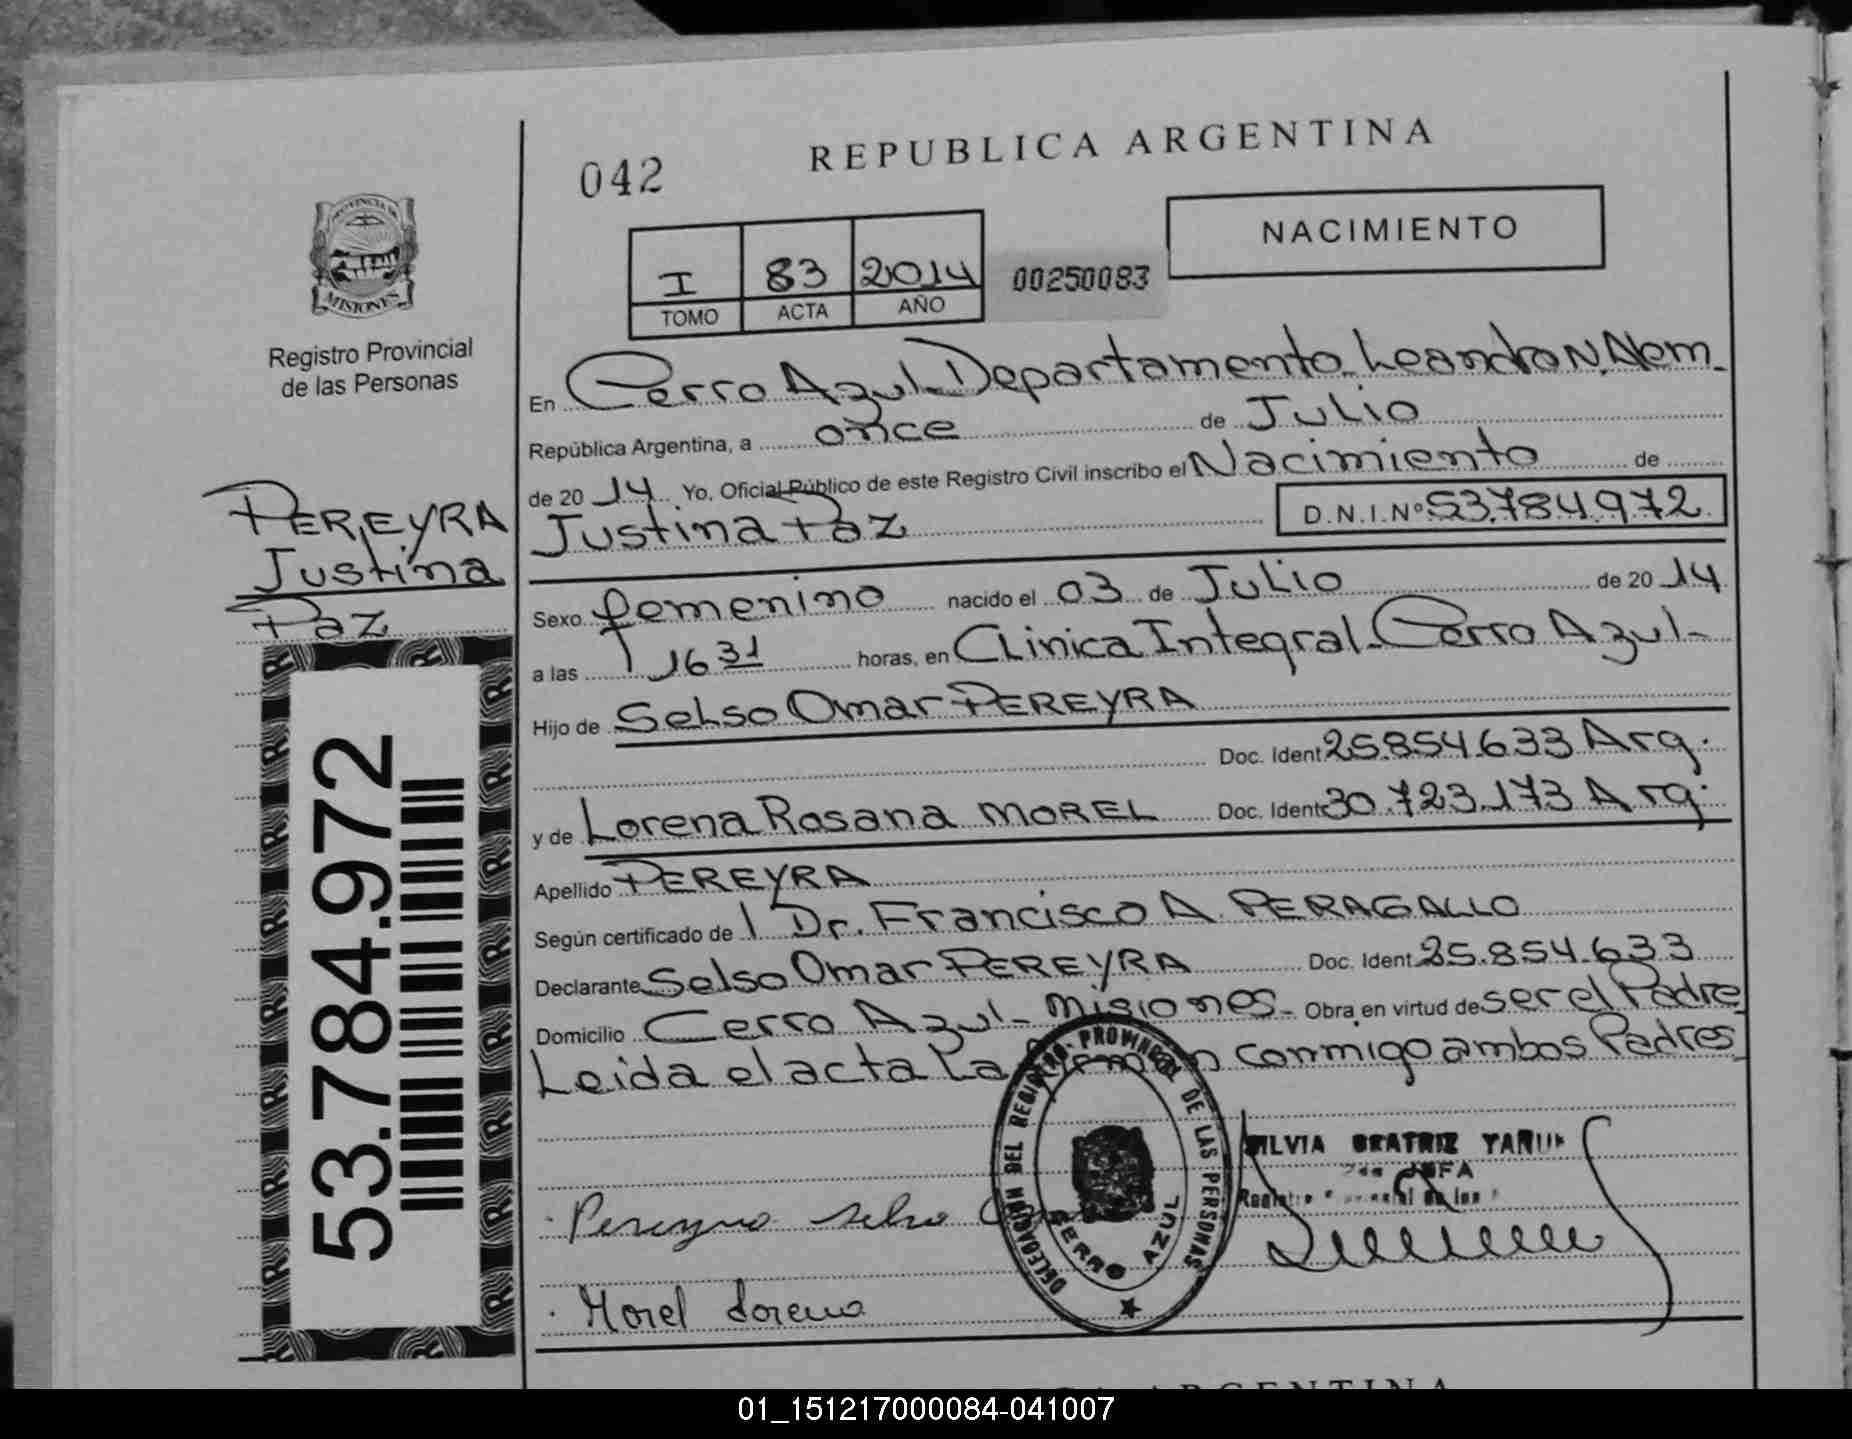 REPUBLICA ARGENTINA
042
NACIMIENTO
I 83 2014 00250083
TOMO ACTA AÑO
PROVINCIA DE
MISIONES
Registro Provincial
de las Personas
En Cerro Azul-Departamento Leandro N. Alem-
República Argentina, a once de Julio
de 20 14 Yo, Oficial Público de este Registro Civil inscribo el Nacimiento de
Justina Paz D.N.I.Nº 53.784.972
PEREYRA
Justina
Paz
Sexo femenino nacido el 03 de Julio de 20 14
a las 16 31 horas, en CLinica Integral-Cerro Azul-
Hijo de Selso Omar PEREYRA
Doc. Ident 25.854.633 Arg.
y de Lorena Rosana MOREL Doc. Ident 30.723.173 Arg.
Apellido PEREYRA
Según certificado de l Dr. Francisco A. PERAGALLO
Declarante Selso Omar PEREYRA Doc. Ident 25.854.633
Domicilio Cerro Azul-Misiones- Obra en virtud de ser el Padre
Leida el acta La firman conmigo ambos Padres
53.784.972
DELEGACION DEL REGISTRO PROVINCIAL DE LAS PERSONAS
CERRO AZUL
SILVIA BEATRIZ
JEFA
Pereyra Selso
Morel Lorena
ARGENTINA
01_151217000084-041007